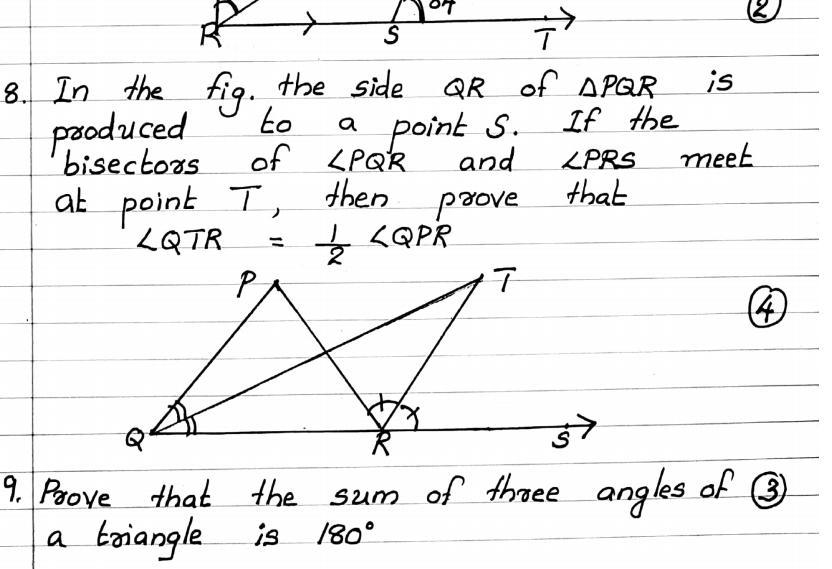 64
(2)
R S T
8. In the fig. the side QR of ΔPQR is
produced to a point S. If the
bisectors of ∠PQR and ∠PRS meet
at point T, then prove that
∠QTR = 1/2 ∠QPR
P T
(4)
Q R S
9. Prove that the sum of three angles of (3)
a triangle is 180°